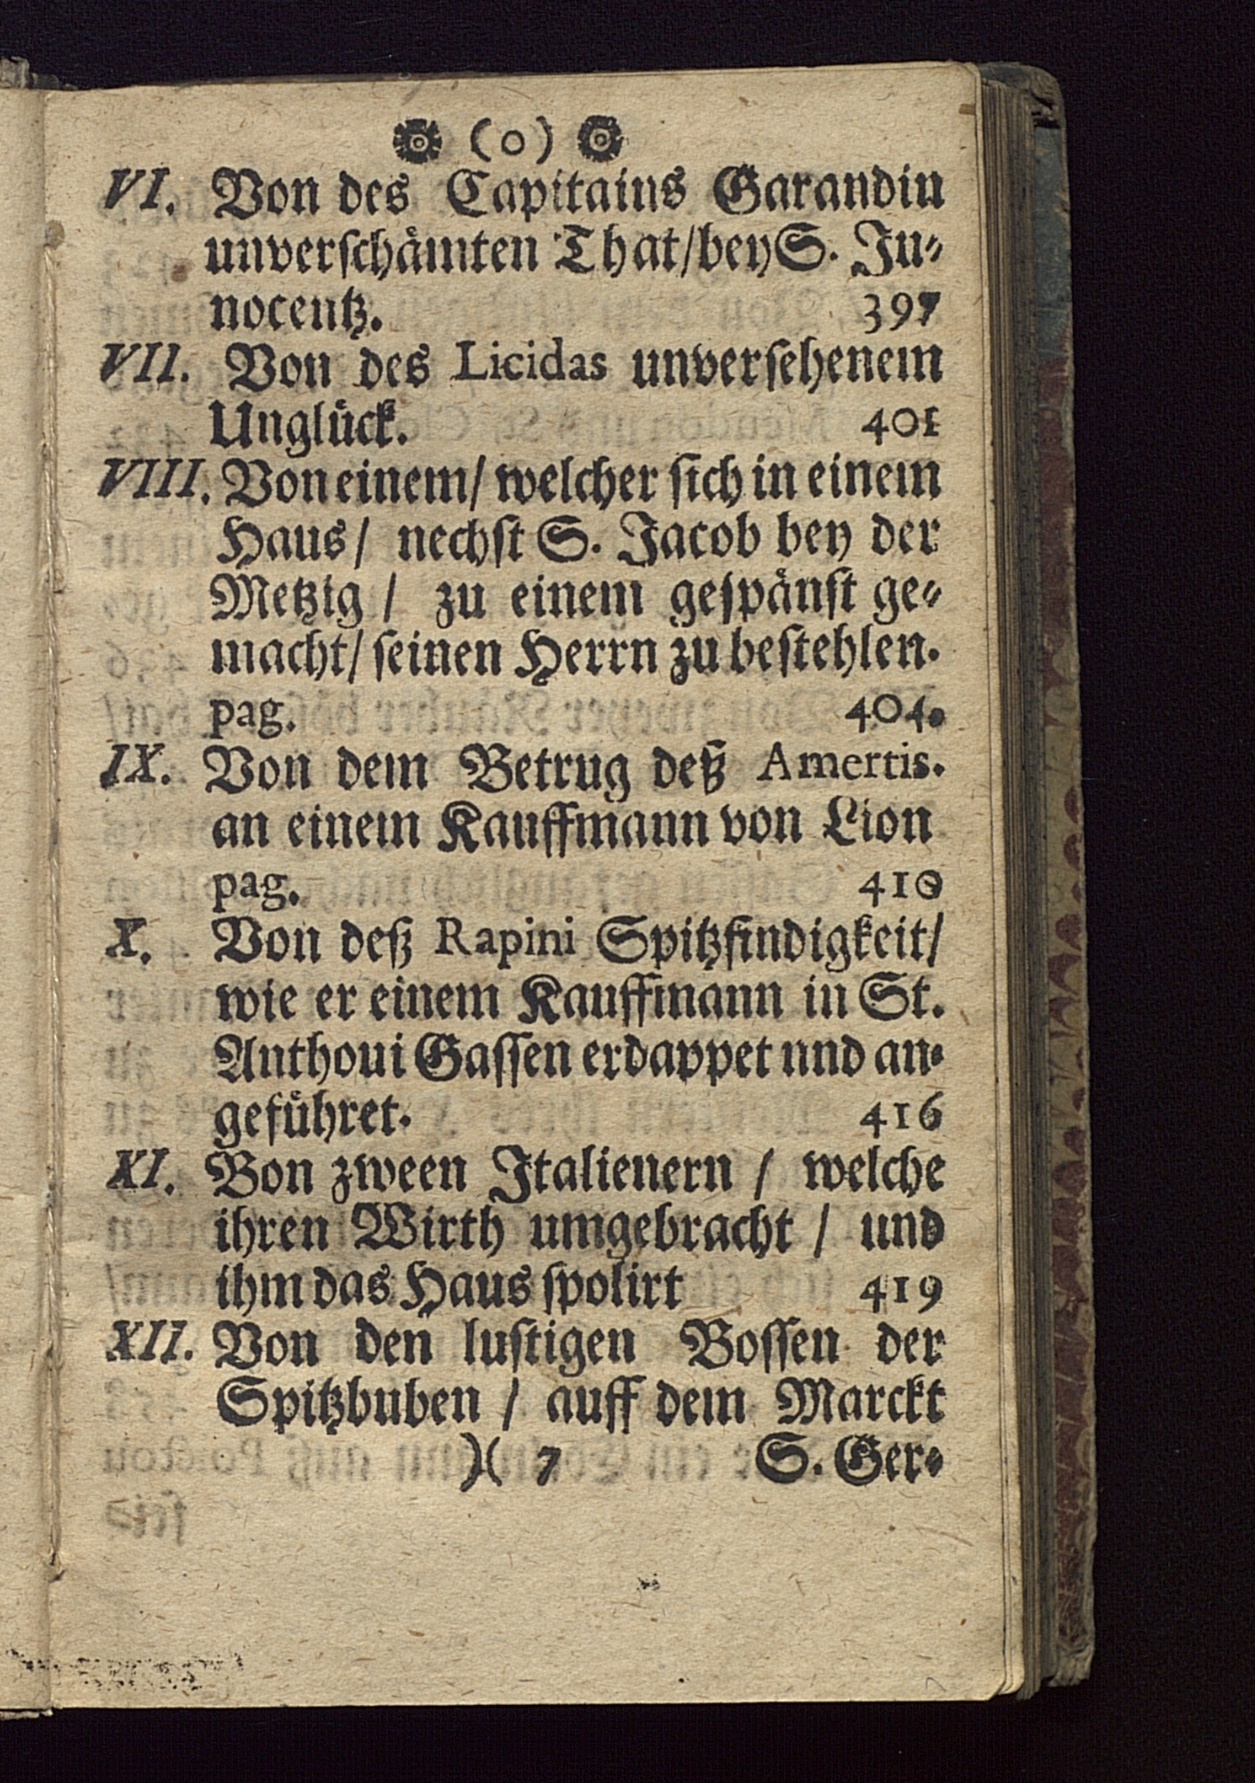 (o)
VI. Von des Capitains Garandin
unverschämten That/bey S. Ju-
nocentz. 397
VII. Von des Licidas unversehenem
Unglück. 401
VIII. Von einem/ welcher sich in einem
Haus/ nechst S. Jacob bey der
Metzig / zu einem gespänst ge-
macht/ seinen Herrn zu bestehlen.
pag. 404.
IX. Von dem Betrug deß Amertis.
an einem Kauffmann von Lion
pag. 410
X. Von deß Rapini Spitzfindigkeit/
wie er einem Kauffmann in St.
Anthoui Gassen erdappet und an-
geführet. 416
XI. Von zween Italienern / welche
ihren Wirth umgebracht / und
ihm das Haus spolirt 419
XII. Von den lustigen Bossen der
Spitzbuben / auff dem Marckt
)( 7 S. Ger-